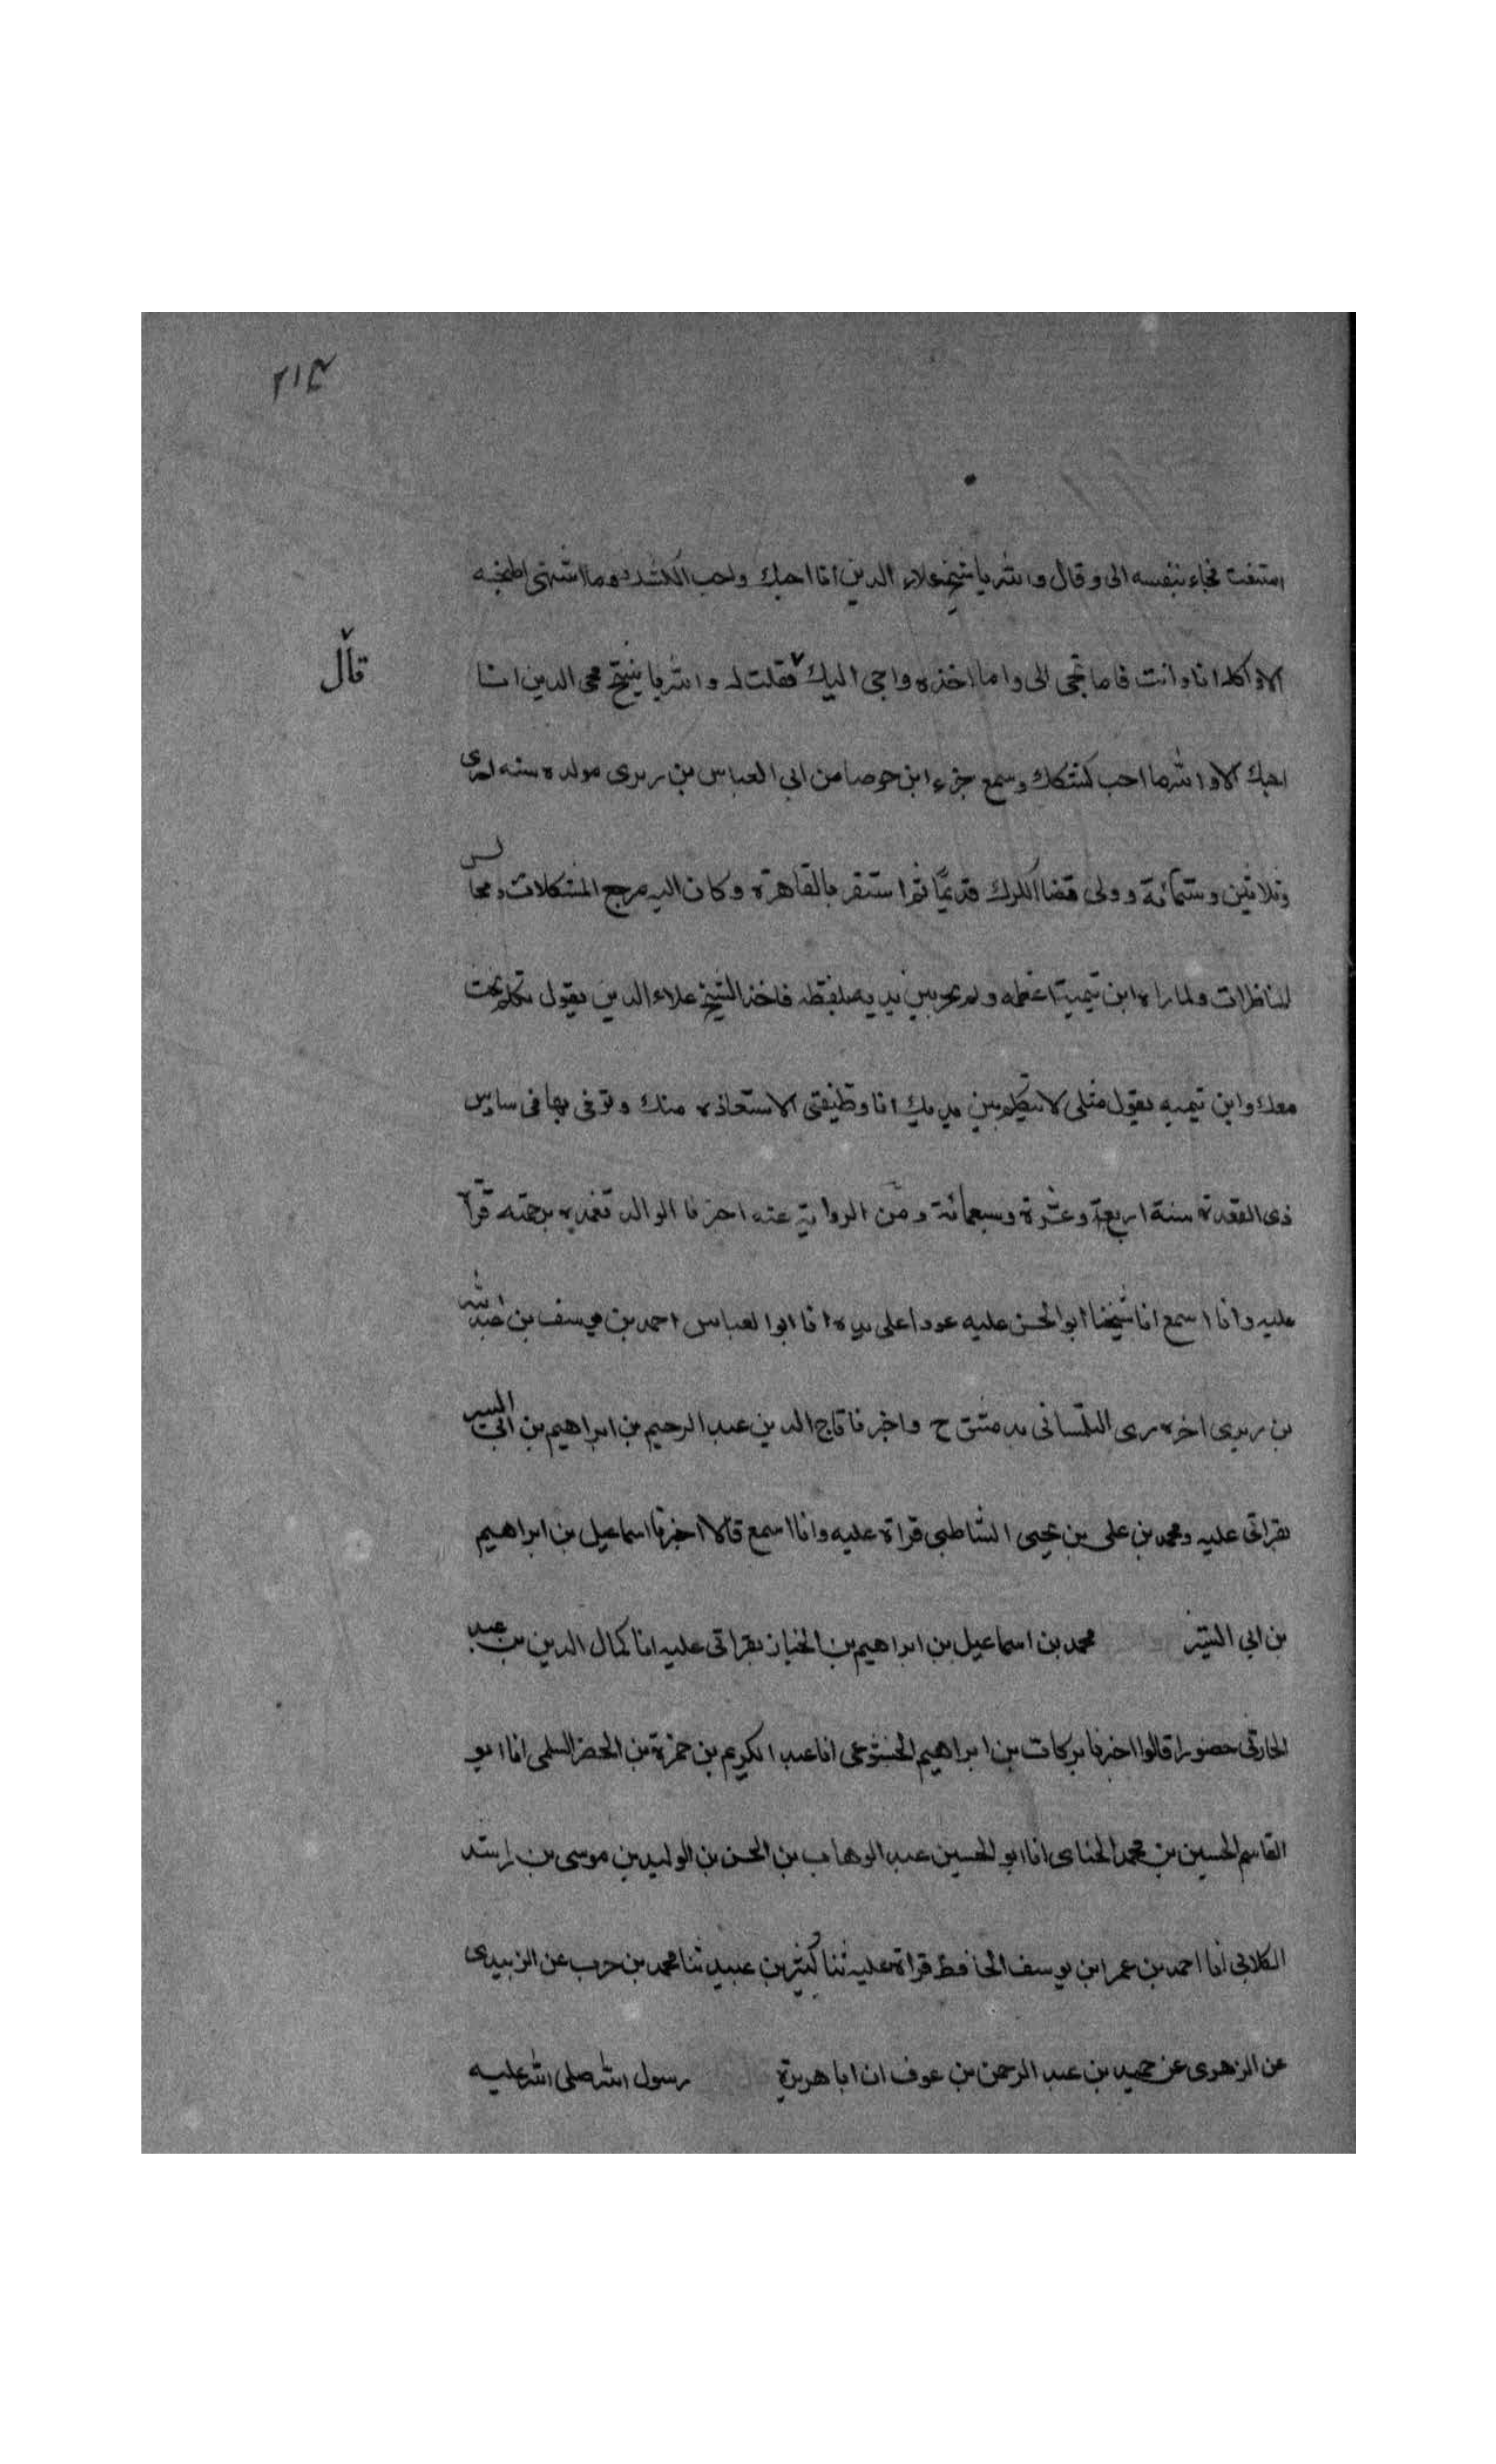 ٢١٣
امتنعت فجاء بنفسه الى وقال والله يا شيخ علاء الدين انا احبك واحب الكشك وما اشتهى اطبخه
الا واكله انا وانت فاما تجى الى واما اخذه واجى اليك فقلت له والله يا شيخ محى الدين انا
قال
احبك الا والله ما احب كشكك وسمع جزء ابن جوصا من ابي العباس بن زيرى مولده سنه احدى
وثلاثين وستمائة وولى قضا الكرك قديمًا ثم استقر بالقاهرة وكان اليه مرجع المشكلات ومجالس
المناظرات ولما راه ابن تيمية اعظمه ولم يجر بين يديه بلفظه فاخذ الشيخ علاء الدين يقول تكلم نبحث
معك وابن تيميه يقول مثلى لا يتكلم بين يديك انا وظيفتى الاستفاذه منك وتوفى بها فى سادس
ذى القعدة سنة اربعة وعشرة وسبعمائة ومن الرواية عنه اخبرنا الوالد تغمده برحمته قرآ
عليه وانا اسمع انا شيخنا ابو الحسن عليه عودا على بدء انا ابو العباس احمد بن يوسف بن عبد الله
بن زيرى اخره رى التلمسانى بدمشق ح واخبرنا تاج الدين عبد الرحيم بن ابراهيم بن ابى اليسر
بقراتى عليه ومحمد بن على بن يحيى الشاطبى قراة عليه وانا اسمع قالا اخبرنا اسماعيل بن ابراهيم
بن ابي اليسر محمد بن اسماعيل بن ابراهيم بن الخباز بقراتى عليه انا كمال الدين بن عبد
الحارثى حضورا قالوا اخبرنا بركات بن ابراهيم الخشوعى انا عبد الكريم بن حمزة بن الخضر السلمى انا ابو
القاسم الحسين بن محمد الحناى انا ابو الحسين عبد الوهاب بن الحسن بن الوليد بن موسى بن راشد
الكلابى انا احمد بن عمر ابن يوسف الحافظ قراة عليه ثنا كثير بن عبيد ثنا محمد بن حرب عن الزبيدى
عن الزهرى عن حميد بن عبد الرحمن بن عوف ان ابا هريرة رسول الله صلى الله عليه